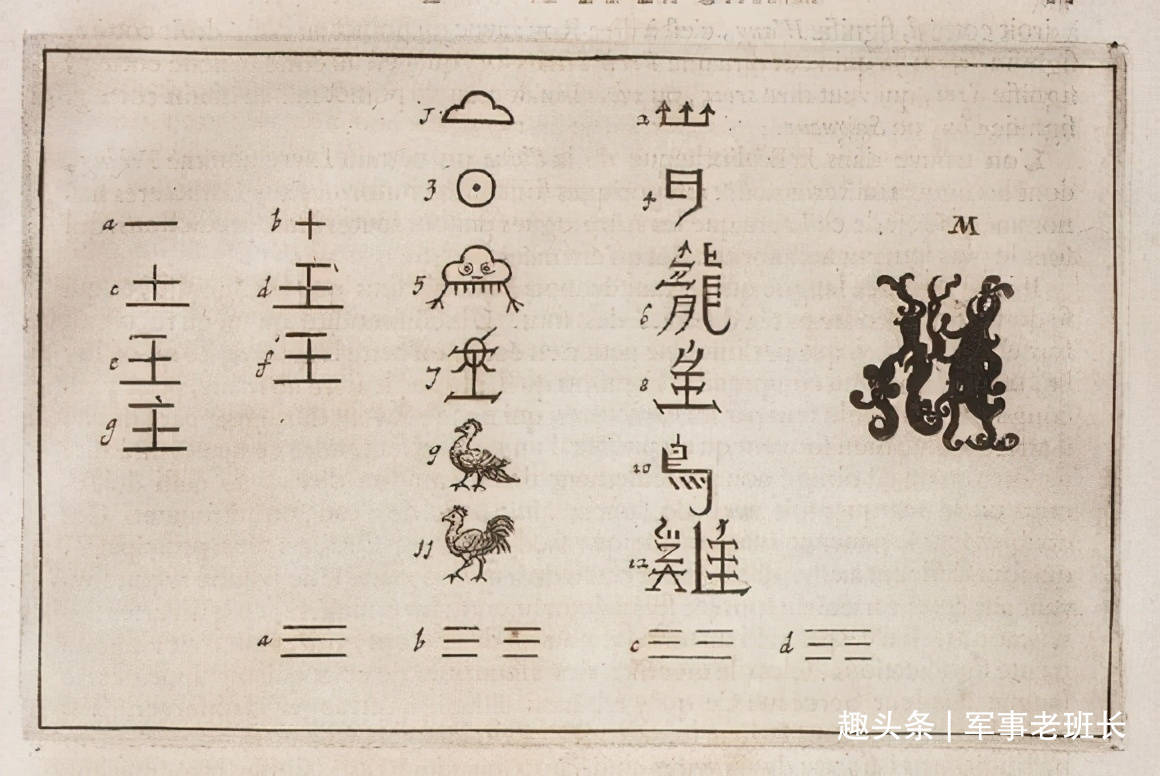 1 2
3 4 日
a 一 b 十 M
c 土 d 王 5 6 龍
e f 7 8
g 9 10 鳥
11 12 雞
a b c d
趣头条 | 军事老班长